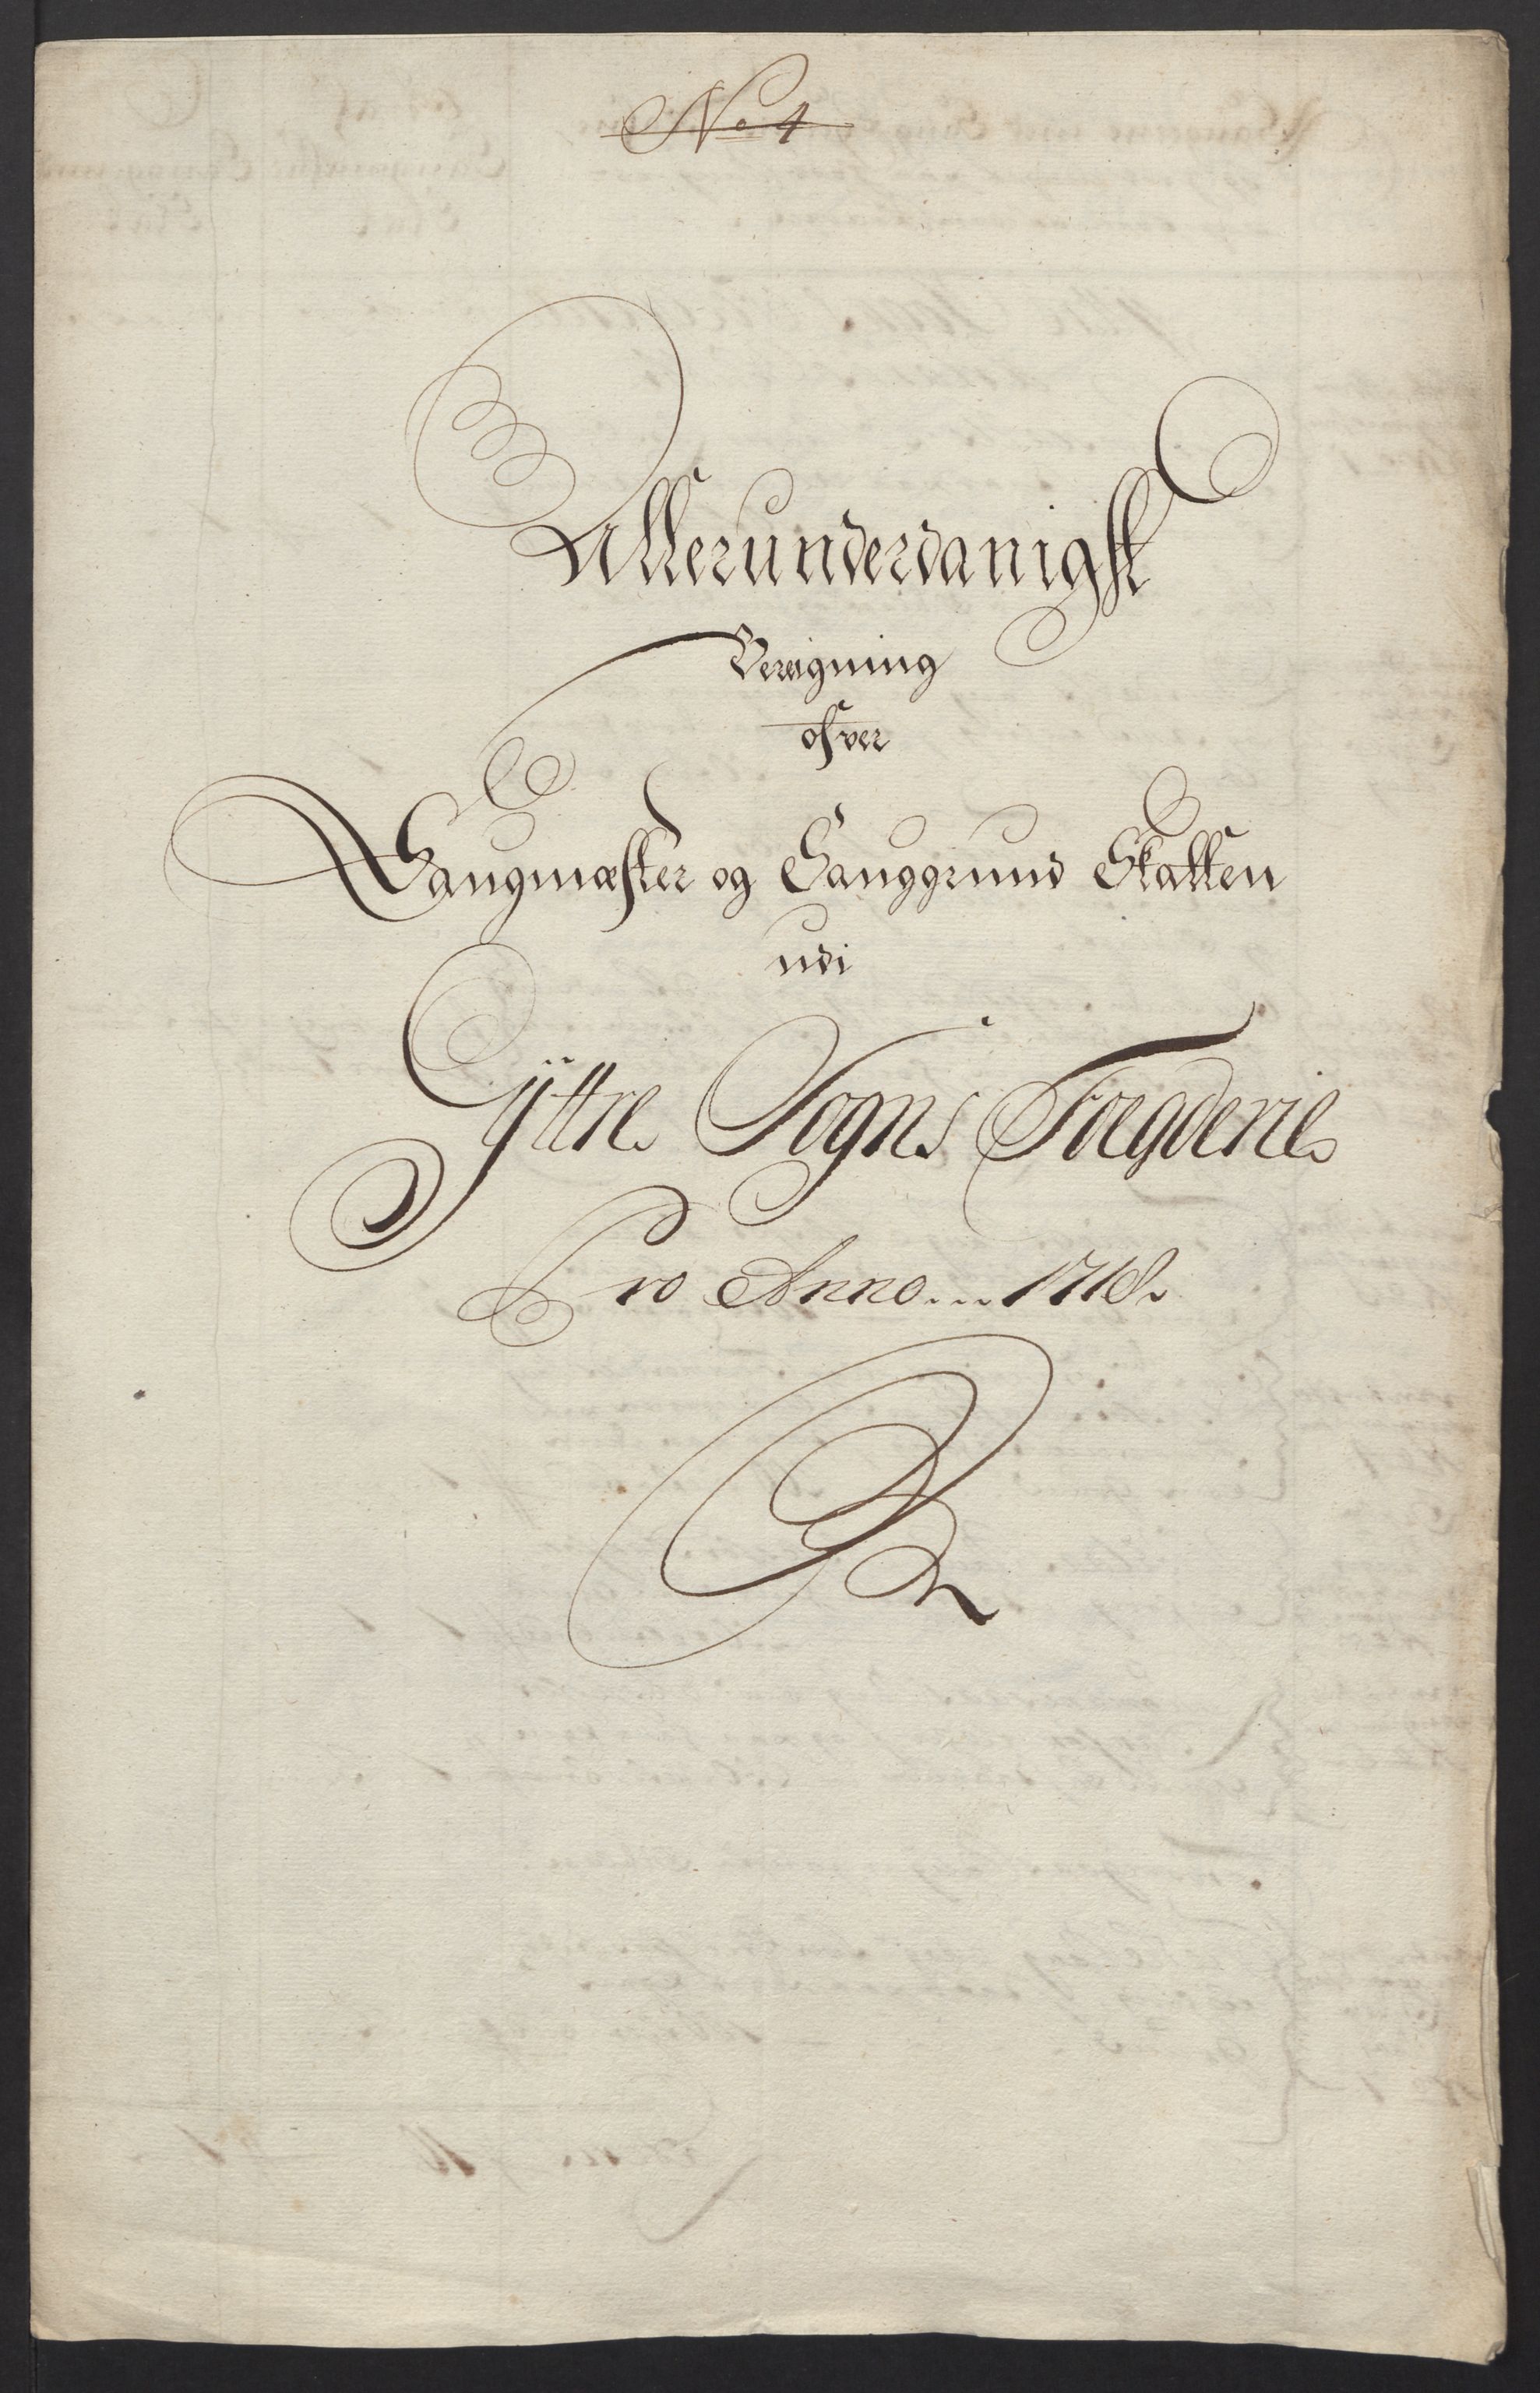 No 4
Allerunderdanigst
Beregning
ofver
Saugmæster og Sauggrund Skatten
udi
ÿttre Sogns Foegderie
Pro Anno... 1718.